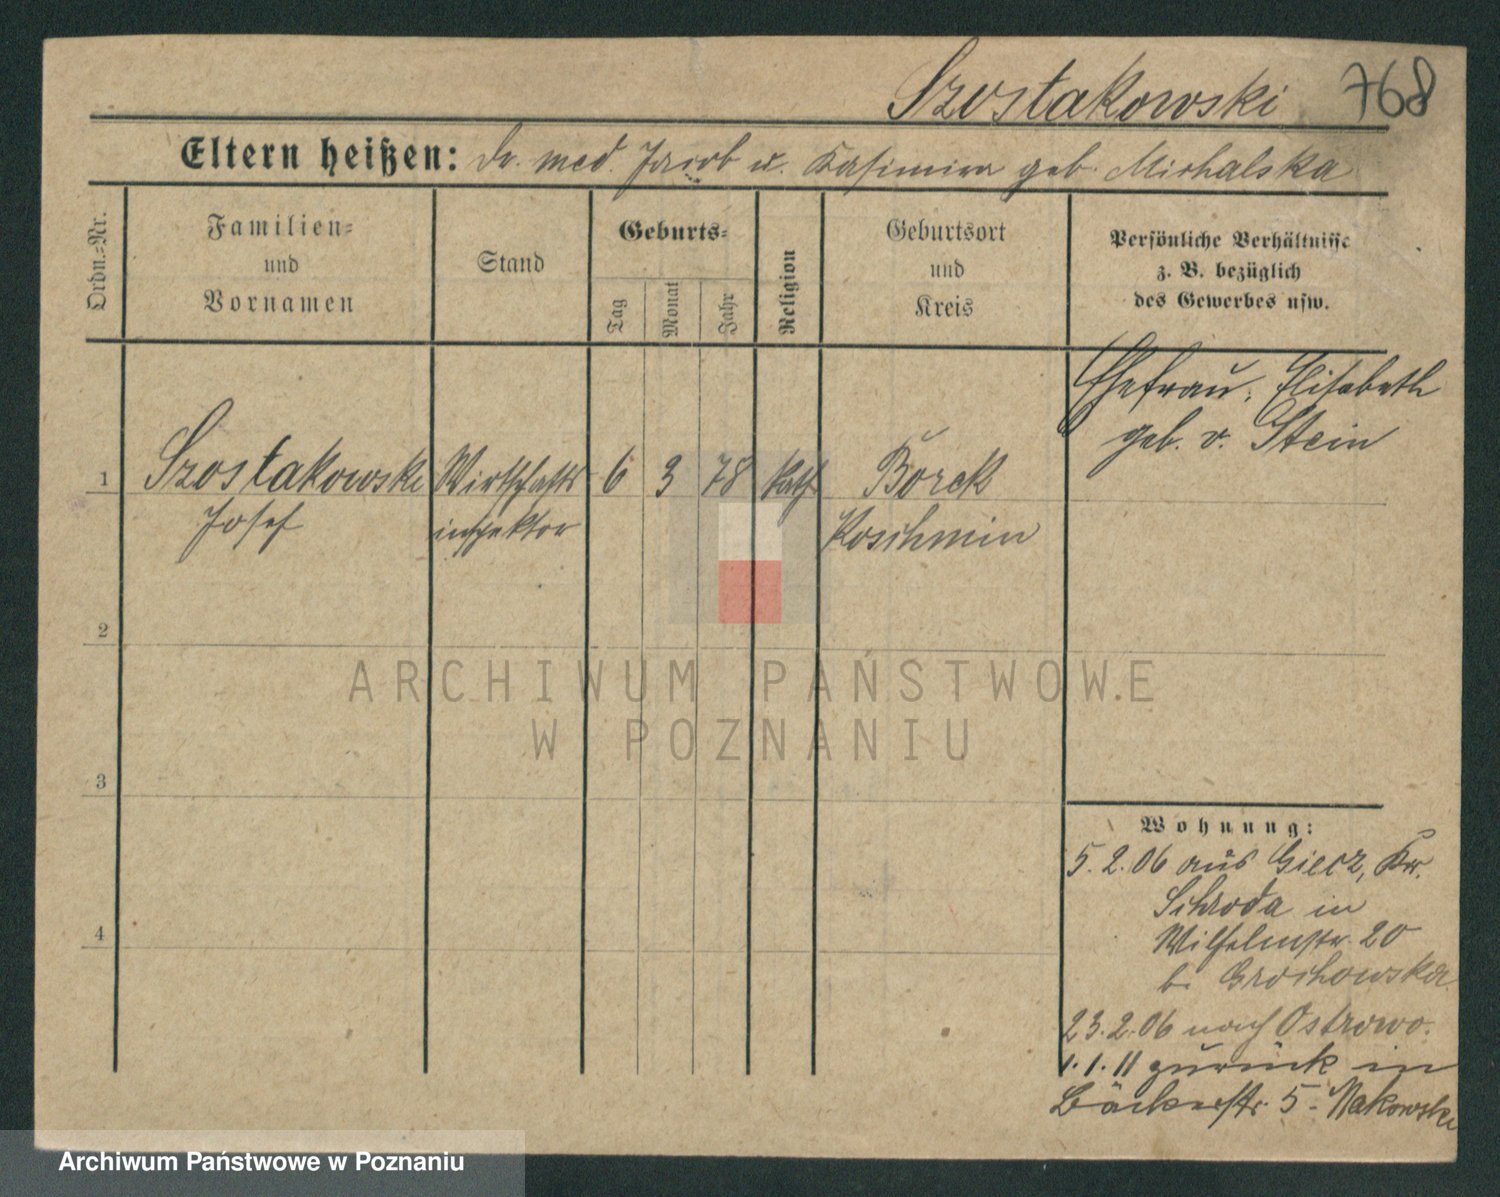 Szostakowski 768
Eltern heißen: Dr. med. Jacob u. Kasimira geb. Michalska
Ordn.=Nr.
Familien=
und
Vornamen
Stand
Geburts=
Tag
Monat
Jahr
Religion
Geburtsort
und
Kreis
Persönliche Verhältnisse
z. B. bezüglich
des Gewerbes usw.
Ehefrau: Elisabeth
geb. v. Stein
1 Szostakowski Wirtschafts 6 3 78 kath Borek
Josef inspektor Koschmin
2
3
4
Wohnung:
5.2.06 aus Giecz, Kr.
Schroda in
Wilhelmstr. 20
b. Grochowska
23.2.06 nach Ostrowo.
1.1.11 zurück in
Bäckerstr. 5 - Makowski
ARCHIWUM PAŃSTWOWE
W POZNANIU
Archiwum Państwowe w Poznaniu